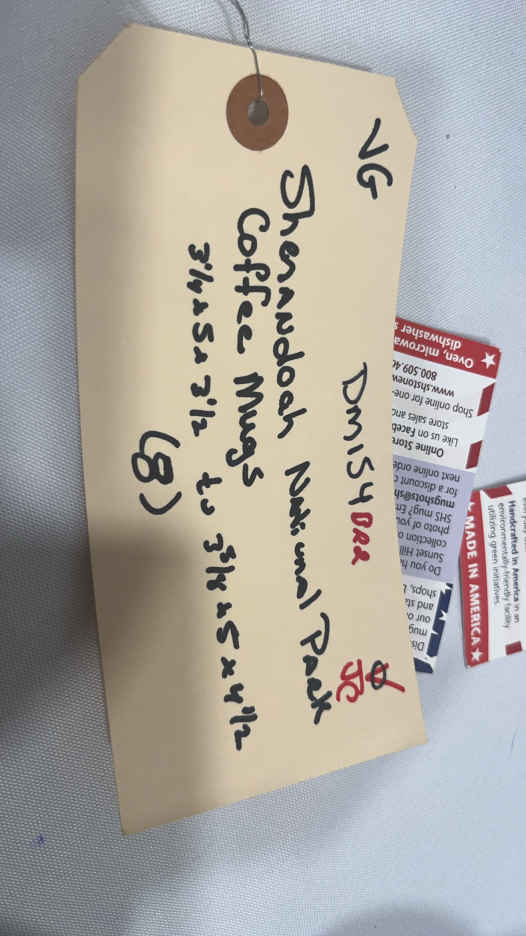 VG
DM154 BRR
JC
Shenandoah National Park
Coffee Mugs
3 1/4 x 5 x 3 1/2 to 3 3/4 x 5 x 4 1/2
(8)
Oven, microwa
dishwasher s
800.509.46
www.shstonew
Shop online for one-
store sales and
Like us on Faceb
Online Store
next online orde
for a discount c
mugshots@sh
SHS mug? Em
photo of you
collection o
Sunset Hill
Do you h
shops, t
and sta
our o
mug
Dis
Handcrafted in America in an
environmentally-friendly facility
utilizing green initiatives.
★ MADE IN AMERICA ★